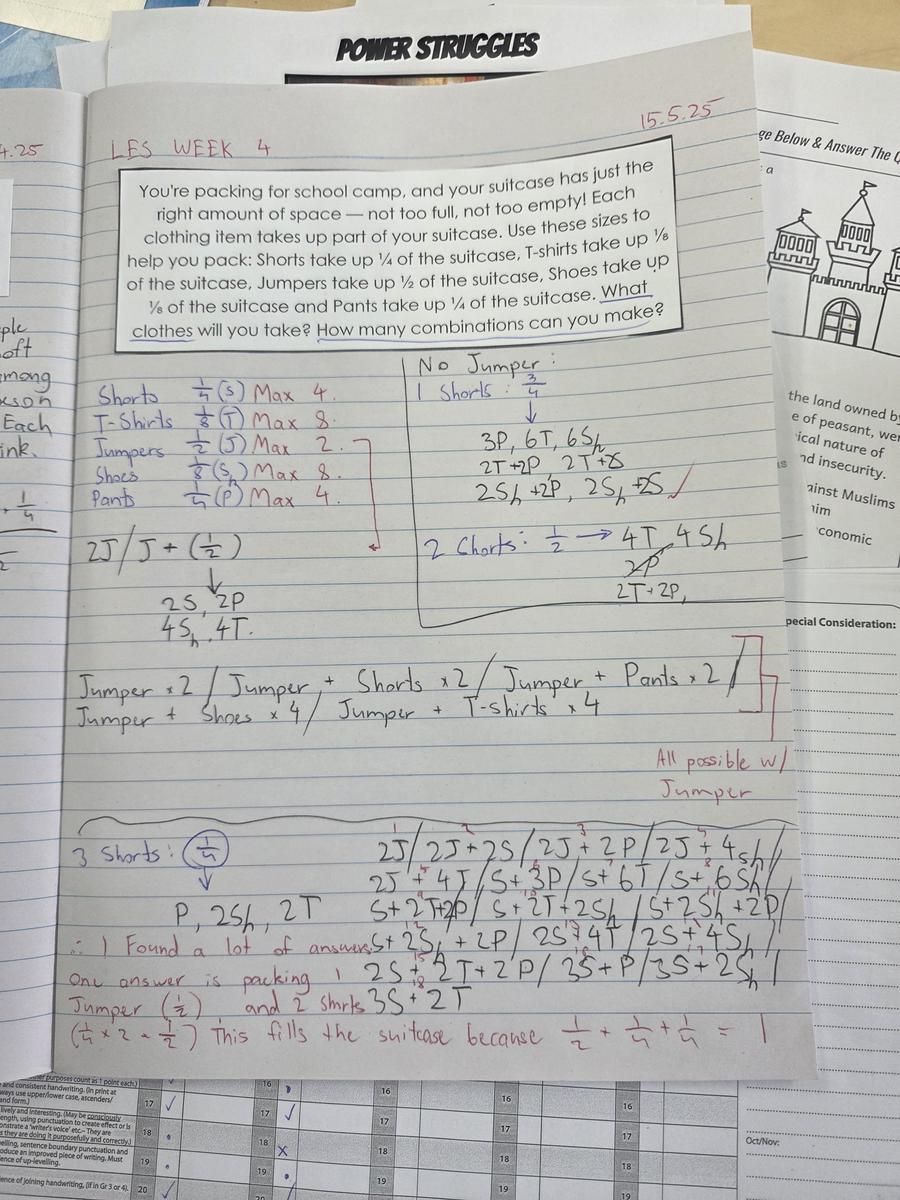 POWER STRUGGLES
4.25
15.5.25
LES WEEK 4
You're packing for school camp, and your suitcase has just the
right amount of space — not too full, not too empty! Each
clothing item takes up part of your suitcase. Use these sizes to
help you pack: Shorts take up ¼ of the suitcase, T-shirts take up ⅛
of the suitcase, Jumpers take up ½ of the suitcase, Shoes take up
⅛ of the suitcase and Pants take up ¼ of the suitcase. What
clothes will you take? How many combinations can you make?
Shorts 1/4 (S) Max 4.
T-Shirts 1/8 (T) Max 8.
Jumpers 1/2 (J) Max 2.
Shoes 1/8 (Sh) Max 8.
Pants 1/4 (P) Max 4.
2J/J + (1/2)
↓
2S, 2P
4Sh, 4T.
No Jumper:
1 Shorts: 3/4
↓
3P, 6T, 6Sh
2T+2P, 2T+2S
2Sh+2P, 2Sh+2S ✓
2 Shorts: 1/2 → 4T, 4Sh
2P
2T+2P,
Jumper ×2 / Jumper + Shorts ×2 / Jumper + Pants ×2 /
Jumper + Shoes ×4 / Jumper + T-shirts ×4
All possible w/
Jumper
3 Shorts: 1/4
↓
P, 2Sh, 2T
2J/2J+2S/2J+2P/2J+4Sh/
2J+4T/S+3P/S+6T/S+6Sh/
S+2T+2P/S+2T+2Sh/S+2Sh+2P/
S+2Sh+2P/2S+4T/2S+4Sh/
2S+2T+2P/3S+P/3S+2Sh/
3S+2T
∴ I Found a lot of answers
One answer is packing 1
Jumper (1/2) and 2 Shorts
(1/4 × 2 = 1/2) This fills the suitcase because 1/2 + 1/4 + 1/4 = 1
ple
oft
among
Each
ink.
ge Below & Answer The Q
a
the land owned by
e of peasant, wer
ical nature of
nd insecurity.
ainst Muslims
aim
conomic
pecial Consideration:
Oct/Nov:
and consistent handwriting. (In print at
ways use upper/lower case, ascenders/
and form.)
lively and interesting. (May be consciously
length, using punctuation to create effect or is
onstrate a 'writer's voice' etc.– They are
s they are doing it purposefully and correctly.)
elling, sentence boundary punctuation and
oduce an improved piece of writing. Must
ence of up-levelling.
ence of joining handwriting, (if in Gr 3 or 4).
16 16 16 16
17 17 17 17 17
18 18 18 18 18
19 19 19 19 19
20 20